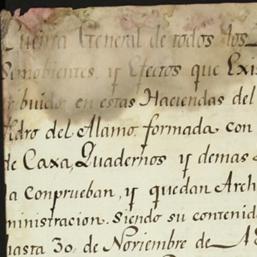 Cuenta General de todos los
Semobientes, y Efectos que Exis
ribuido en estas Haciendas del
Pedro del Alamo, formada con
de Caxa, Quadernos y demas
a conprueban, y quedan Arch
ministracion. Siendo su contenid
hasta 30 de Noviembre de